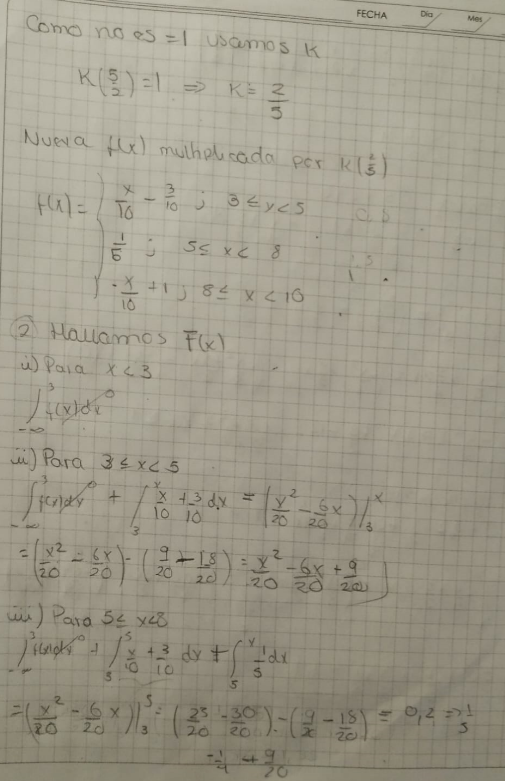 FECHA Dia Mes
Como no es = 1 usamos K
K(5/2) = 1 ⇒ K = 2/5
Nueva f(x) multiplicada por K(2/5)
f(x) = { x/10 - 3/10 ; 3 ≤ x < 5
1/5 ; 5 ≤ x < 8
-x/10 + 1 ; 8 ≤ x < 10
② Hallamos F(x)
i) Para x < 3
∫_{-∞}^{3} f(x)dx 0
ii) Para 3 ≤ x < 5
∫_{-∞}^{3} f(x)dx 0 + ∫_{3}^{x} x/10 + 3/10 dx = (x²/20 - 6x/20) |_{3}^{x}
= (x²/20 - 6x/20) - (9/20 - 18/20) = x²/20 - 6x/20 + 9/20
iii) Para 5 ≤ x < 8
∫_{-∞}^{3} f(x)dx 0 + ∫_{3}^{5} x/10 + 3/10 dx + ∫_{5}^{x} 1/5 dx
= (x²/20 - 6x/20) |_{3}^{5} = (25/20 - 30/20) - (9/20 - 18/20) = 0,2 ⇒ 1/5
= -1/4 + 9/20